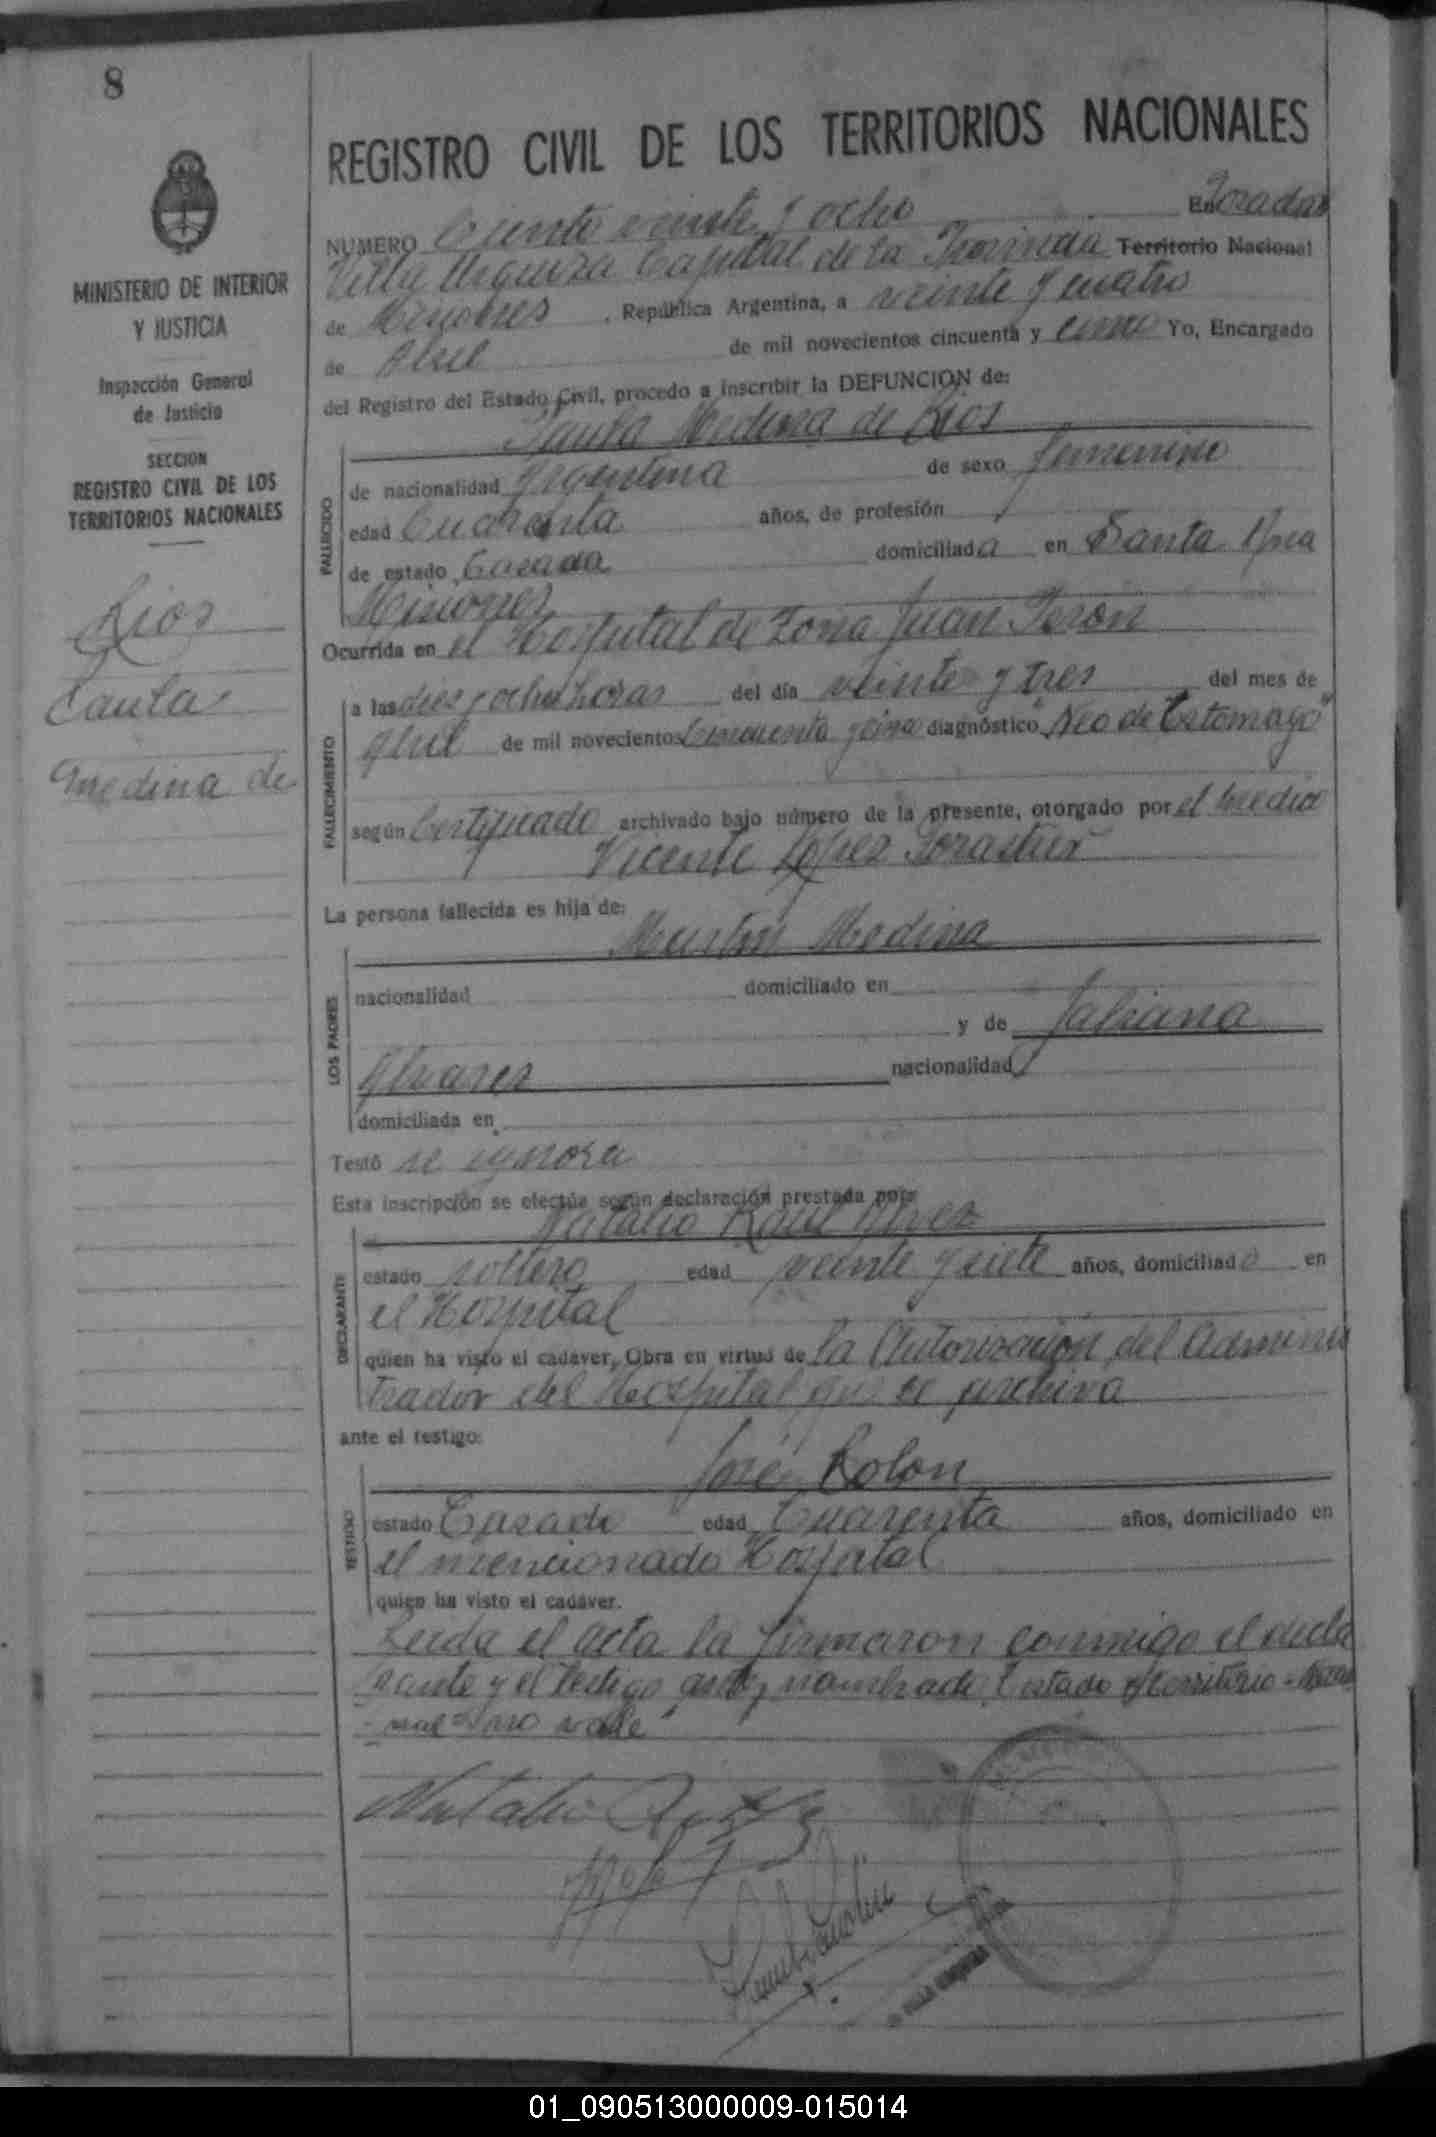 8
REGISTRO CIVIL DE LOS TERRITORIOS NACIONALES
MINISTERIO DE INTERIOR
Y JUSTICIA
Inspección General
de Justicia
SECCION
REGISTRO CIVIL DE LOS
TERRITORIOS NACIONALES
Rios
Paula
Medina de
NUMERO Ciento veinte y ocho En Posadas
Villa Urquiza Capital de la Provincia Territorio Nacional
de Misiones , República Argentina, a veinte y cuatro
de Abril de mil novecientos cincuenta y cinco Yo, Encargado
del Registro del Estado Civil, procedo a inscribir la DEFUNCION de:
Paula Medina de Rios
FALLECIDO
de nacionalidad Argentina de sexo femenino
edad Cuarenta años, de profesión
de estado Casada domiciliada en Santa Ana
Misiones
Ocurrida en el Hospital de Zona Juan Perón
FALLECIMIENTO
a las diez y ocho horas del día veinte y tres del mes de
Abril de mil novecientos cincuenta y cinco diagnóstico "Neo de Estomago"
según Certificado archivado bajo número de la presente, otorgado por el medico
Vicente López Forastier
La persona fallecida es hija de:
Martin Medina
LOS PADRES
nacionalidad domiciliado en
y de Juliana
Alvarez nacionalidad
domiciliada en
Testó se ignora
Esta inscripción se efectúa según declaración prestada por:
Natalio Raul
DECLARANTE
estado soltero edad veinte y siete años, domiciliado en
el Hospital
quien ha visto el cadáver, Obra en virtud de la Autorización del Adminis
trador del Hospital que se archiva
ante el testigo:
José Rolon
TESTIGO
estado Casado edad Cuarenta años, domiciliado en
el mencionado Hospital
quien ha visto el cadáver.
Leida el acta la firmaron conmigo el decla
rante y el testigo nombrado. Testado "Territorio - Nacio
nal" no vale
Natalio
01_090513000009-015014